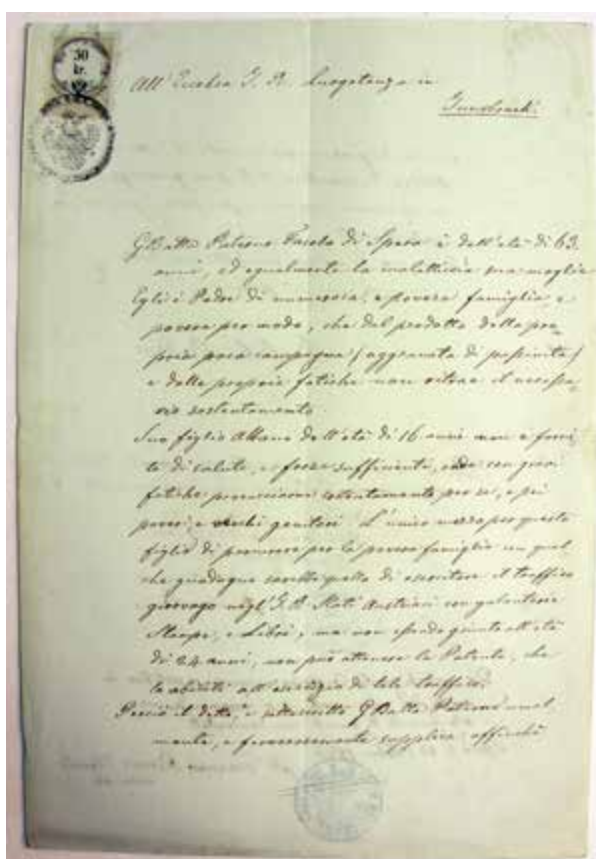 50
kr.
All' Eccelsa I. R. Luogotenza in
Innsbruck.
GBatta Patterno Fasolo di Spera è dell'età di 63.
anni, ed egualmente la malatticia sua moglie
Egli è Padre di numerosa, e povera famiglia e
povera per modo, che dal prodotto della pro-
pria poca campagna (aggravata di passività)
e dalle proprie fatiche non ritrae il necessa-
rio sostentamento.
Suo figlio Albano dell'età di 16 anni non è forni-
to di salute, e forze sufficienti, onde con gravi
fatiche procacciare sostentamento per se, e pei
poveri, e vecchi genitori. L'unico mezzo per questo
figlio di procurare per la povera famiglia un qual
che guadagno sarebbe quello di esercitare il traffico
girovago negl' I. R. Stati Austriaci con galanterie
Stampe, e Libri, ma non essendo giunto all'età
di 24 anni, non può ottenere la Patente, che
lo abiliti all'esercizio di tale traffico.
Perciò il detto, e sottoscritto GBatta umil
mente, e fervorosamente supplica affinchè